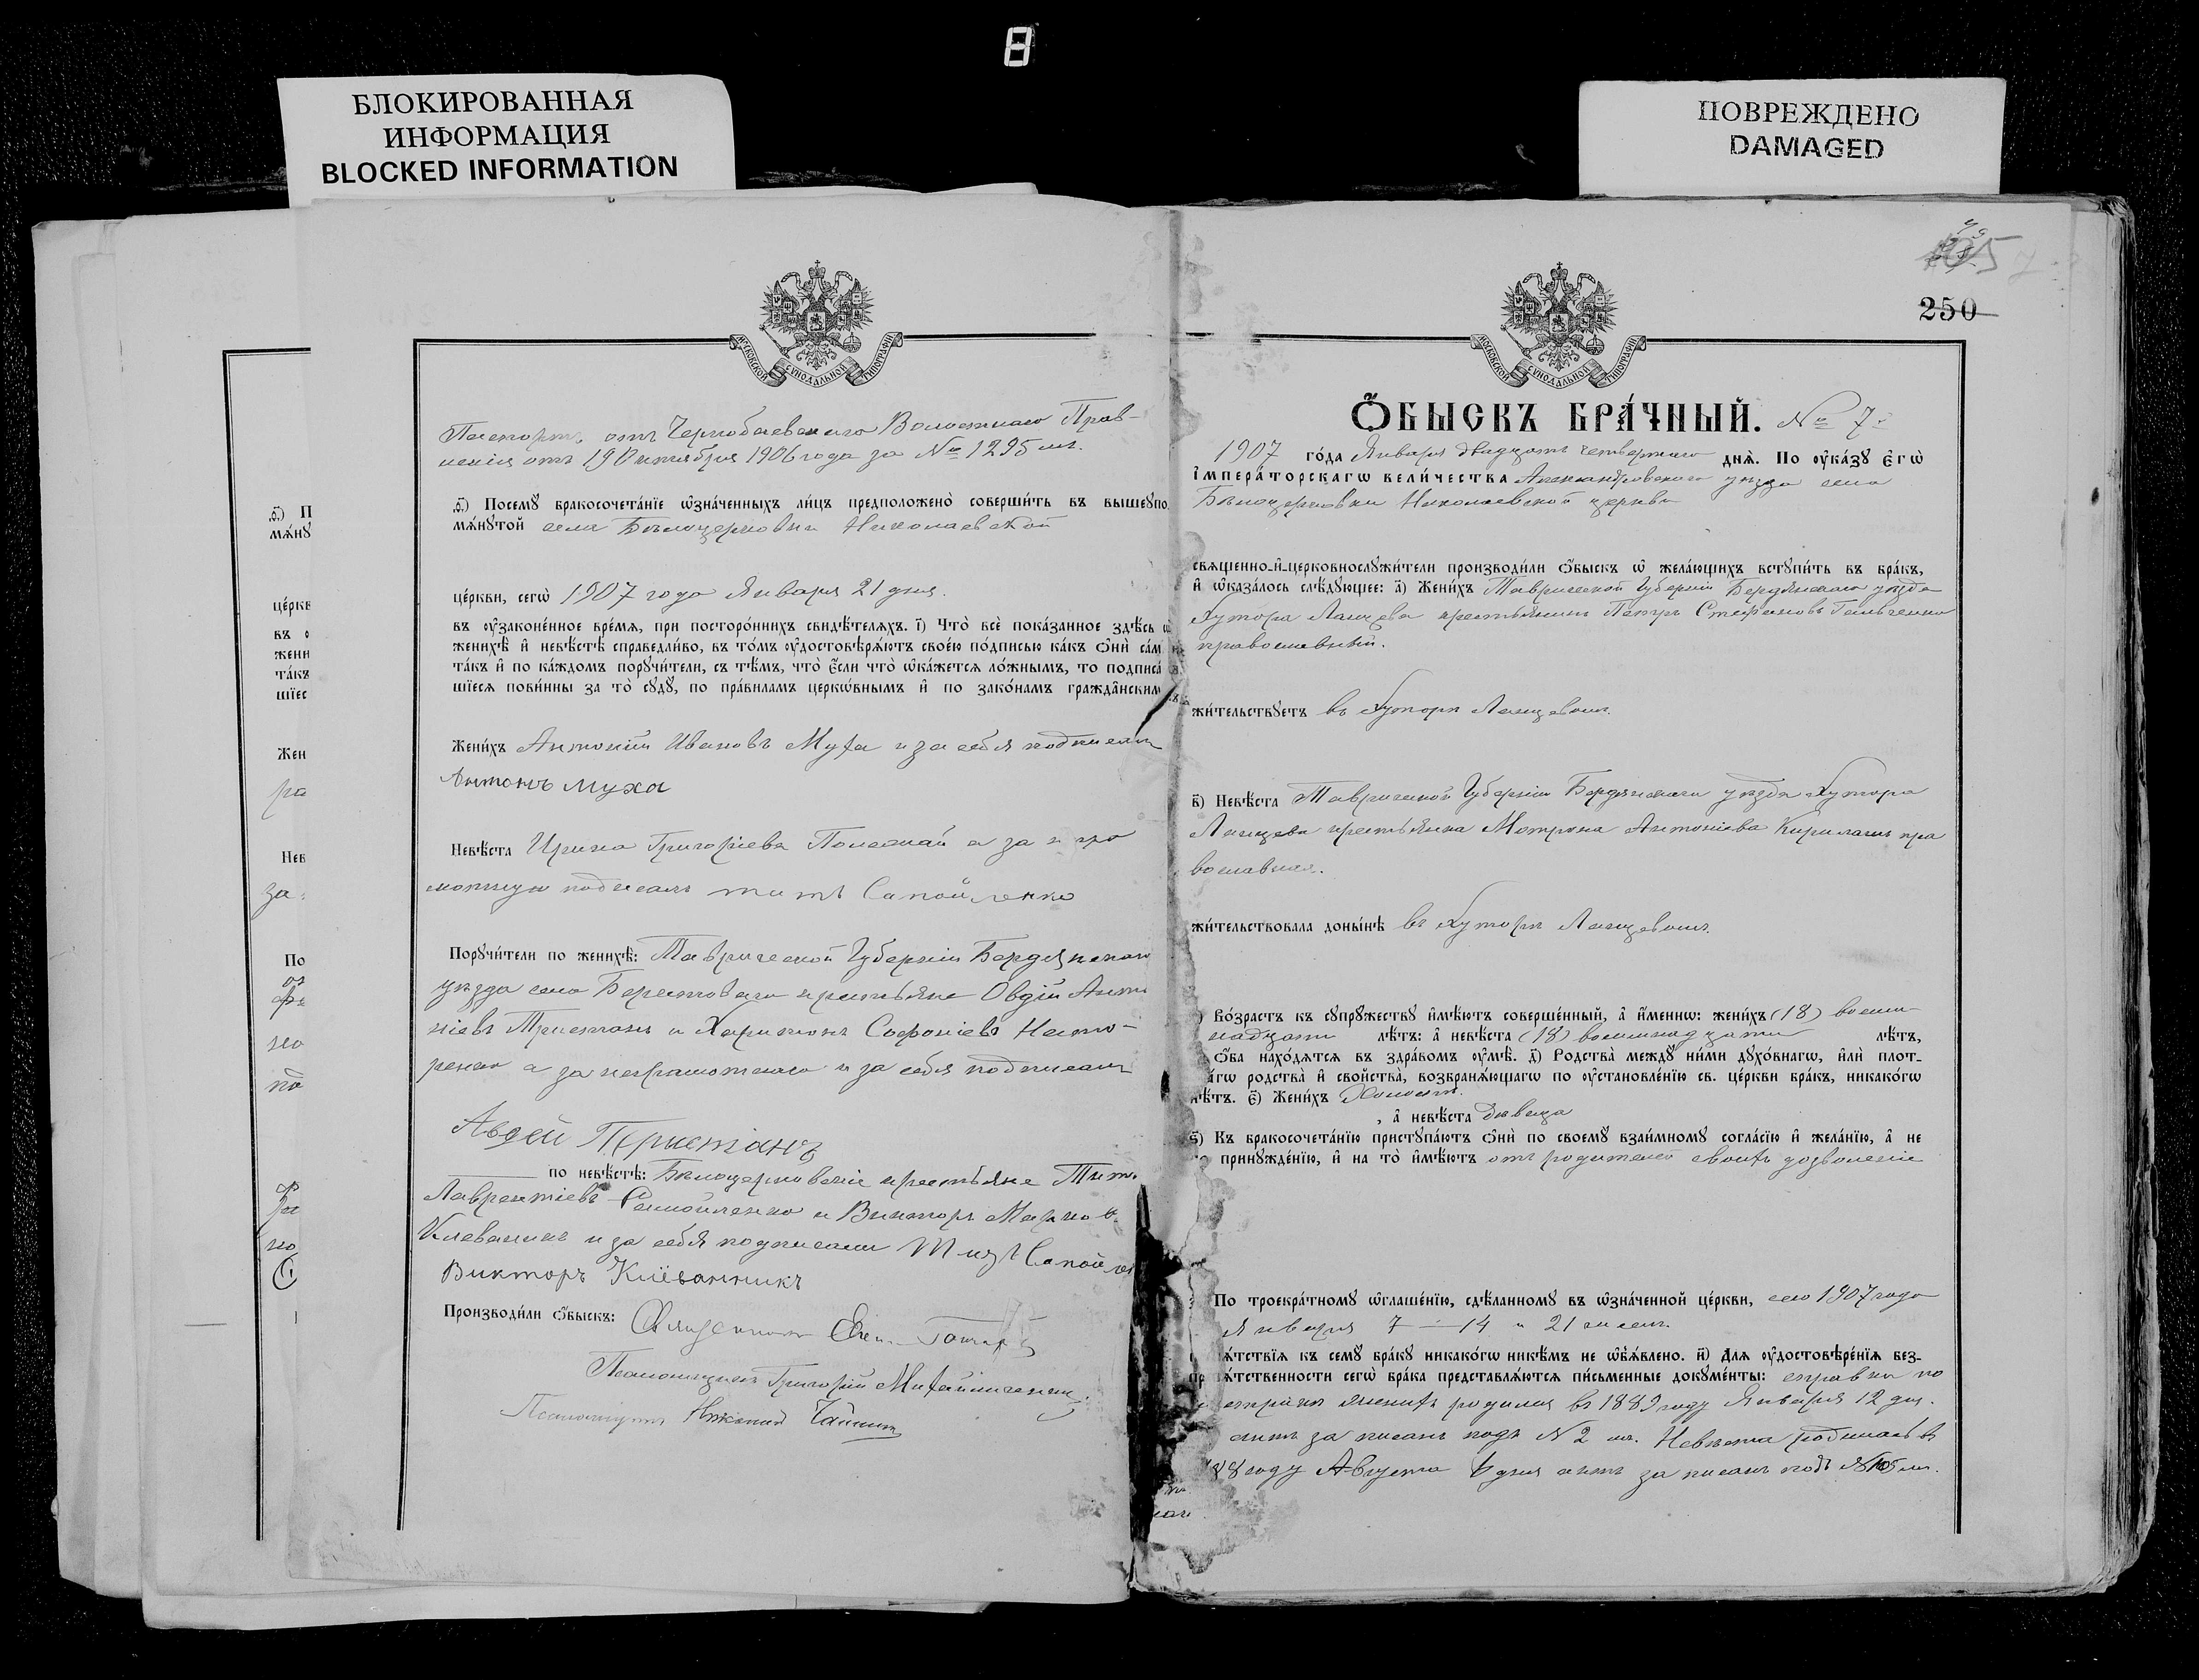 8
БЛОКИРОВАННАЯ
ИНФОРМАЦИЯ
BLOCKED INFORMATION
ПОВРЕЖДЕНО
DAMAGED
МОСКОВСКОЙ СѴНОДАЛЬНОЙ ТИПОГРАФІИ
Паспортъ отъ Чернобаевскаго Волостнаго Прав-
ленія отъ 19 Октября 1906 года за № 1295 мъ.
ѳ҃) Посемꙋ бракосочета́нїе ѡ҆зна́ченныхъ ли́цъ предположено̀ соверши́ть въ вышеꙋпо
мѧ́нꙋтой села Бѣлоцерковки Николаевской
це́ркви, сегѡ̀ 1907 года Января 21 дня.
въ ᲂу҆законе́нное вре́мѧ, при посторо́ннихъ свидѣ́телѧхъ. і҃) Что̀ всѐ пока́занное здѣ́сь ѡ
женихѣ̀ и҆ невѣ́стѣ справедли́во, въ то́мъ ᲂу҆достовѣрѧ́ютъ свое́ю по́дписью ка́къ ѻ҆нѝ са́м
та́къ и҆ по ка́ждомъ порꙋчи́тели, съ тѣ́мъ, что̀ є҆́сли что̀ ѡ҆ка́жетсѧ ло́жнымъ, то подписа́
шїесѧ пови́нны за то̀ сꙋдꙋ̀, по пра́виламъ церкѡ́внымъ и҆ по зако́намъ гражда́нским
Жени́хъ Антоній Ивановъ Муха и за себя подписалъ
Антонъ Муха
Невѣ́ста Ирина Григоріева а за не гра
мотную подписалъ титъ Самойленко
Порꙋчи́тели по женихѣ̀: Таврической Губерніи Бердянскаго
уѣзда села Берестоваго крестьяне Овдій Анто
ніевъ Пристанъ и Харитонъ Софоніевъ Несте-
ренко а за неграмотнаго и за себя подписалъ
Авдей Пристанъ
по невѣ́стѣ: Бѣлоцерковскіе крестьяне Титъ
Лаврентіевъ Самойленко и Викторъ Марков
и за себя подписали Титъ Самойлен
Викторъ
Производи́ли ѻ҆́быскъ: Священникъ
Псаломщикъ Григорій
Псаломщикъ
250
Ѻ҆́БЫСКЪ БРА́ЧНЫЙ. № 7й
1907 го́да Января двадцать четвертаго днѧ̀. По ᲂу҆ка́зꙋ є҆гѡ̀
і҆мпера́торскагѡ вели́чества Александровскаго уѣзда села
Бѣлоцерковки Николаевской церкви
свѧще́нно-и҆-церковнослꙋжи́тели производи́ли ѻ҆́быскъ ѡ҆ жела́ющихъ встꙋпи́ть въ бра́къ,
и҆ ѡ҆каза́лось слѣ́дꙋющее: а҃) Жени́хъ Таврической Губерніи Бердянскаго уѣзда
Хутора Ланцева крестьянинъ Петръ Стефановъ Гальченко
православный.
жи́тельствꙋетъ въ Хуторѣ Ланцевомъ.
в҃) Невѣ́ста Таврической Губерніи Бердянскаго уѣзда Хутора
Ланцева крестьянка Матрона Антоніева Кирилашъ пра
вославная.
жи́тельствовала доны́нѣ въ Хуторѣ Ланцевомъ.
) Во́зрастъ къ сꙋпрꙋ́жествꙋ и҆мѣ́ютъ соверше́нный, а҆ и҆́меннѡ: жени́хъ (18) восем-
надцати лѣ́тъ: а҆ невѣ́ста (18) восемнадцати лѣ́тъ,
ѻ҆́ба нахо́дѧтсѧ въ здра́вомъ ᲂу҆мѣ̀. д҃) Родства̀ междꙋ̀ ни́ми дꙋхо́внагѡ, и҆лѝ плот-
а́гѡ родства̀ и҆ сво́йства, возбранѧ́ющагѡ по ᲂу҆становле́нїю св. це́ркви бра́къ, никако́гѡ
нѣ́тъ. є҃) Жени́хъ Холостъ.
, а҆ невѣ́ста дѣвица
ѕ҃) Къ бракосочета́нїю пристꙋпа́ютъ ѻ҆нѝ по своемꙋ̀ взаи́мномꙋ согла́сїю и҆ жела́нїю, а҆ не
принꙋжде́нїю, и҆ на то̀ и҆мѣ́ютъ отъ родителей своихъ дозволеніе
По троекра́тномꙋ ѡ҆глаше́нїю, сдѣ́ланномꙋ въ ѡ҆зна́ченной це́ркви, сего 1907 года
Января 7 – 14 и 21 чиселъ.
ѧ́тствїѧ къ семꙋ̀ бра́кꙋ никако́гѡ никѣ́мъ не ѡ҆б̾ѧ́влено. и҃) Для ᲂу҆достовѣре́нїѧ без-
прѧ́тственности сегѡ̀ бра́ка представлѧ́ютсѧ пи́сьменные докꙋме́нты: справка по
метрикѣ женихъ родился въ 1889 году Января 12 дня.
актъ записанъ подъ № 2 мъ. Невѣста родилась въ
88 году Августа 6 дня актъ записанъ подъ № 105 мъ.